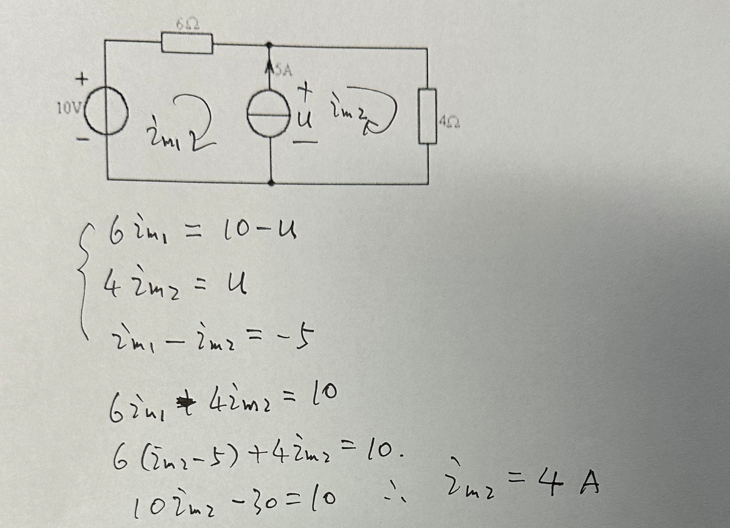 6Ω
5A
+
+
10V
u
4Ω
−
−
im1
im2
6im1 = 10−u
4im2 = u
im1 − im2 = −5
6im1 + 4im2 = 10
6(im2−5)+4im2 = 10.
10im2 −30=10 ∴ im2 = 4 A